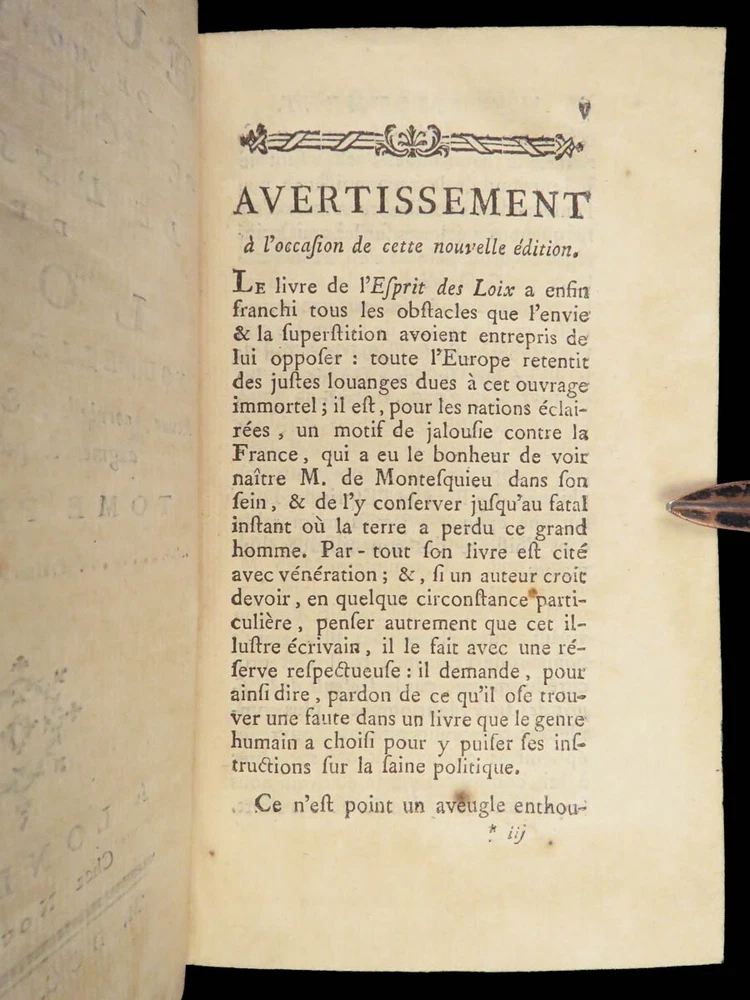 v
AVERTISSEMENT
à l'occaſion de cette nouvelle édition.
LE livre de l'Eſprit des Loix a enfin
franchi tous les obſtacles que l'envie
& la ſuperſtition avoient entrepris de
lui oppoſer : toute l'Europe retentit
des juſtes louanges dues à cet ouvrage
immortel ; il eſt, pour les nations éclai-
rées, un motif de jalouſie contre la
France, qui a eu le bonheur de voir
naître M. de Monteſquieu dans ſon
ſein, & de l'y conſerver juſqu'au fatal
inſtant où la terre a perdu ce grand
homme. Par-tout ſon livre eſt cité
avec vénération ; &, ſi un auteur croit
devoir, en quelque circonſtance parti-
culière, penſer autrement que cet il-
luſtre écrivain, il le fait avec une ré-
ſerve reſpectueuſe : il demande, pour
ainſi dire, pardon de ce qu'il oſe trou-
ver une faute dans un livre que le genre
humain a choiſi pour y puiſer ſes inſ-
tructions ſur la ſaine politique.
Ce n'eſt point un aveugle enthou-
* iij
TOME